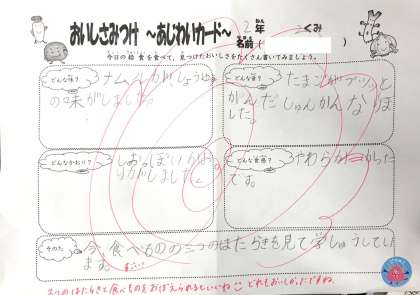 おいしさみつけ ～あじわいカード～
2年 くみ
名前(     )
今日の給食を食べて、見つけたおいしさをたくさん書いてみましょう。
どんな味?
ナムルが、しょうゆ
の味がしました。
どんな音?
たまごがプツッと
かんだしゅんかんなりま
した。
どんなかおり?
しおっぽいかお
りがしました。
どんな食感?
やわらかかった
です。
その他
今、食べものの三つのはたらきを見て学しゅうしてい
ます。
すごい!
3つのはたらきと食べものをおぼえられるといいね どれもおいしかったですね